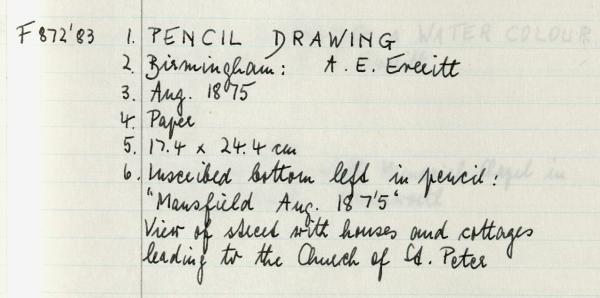 F 872'83 1. PENCIL DRAWING
2. Birmingham: A. E. Everitt
3. Aug. 1875
4. Paper
5. 17.4 x 24.4 cm
6. Inscribed bottom left in pencil:
"Mansfield Aug. 187'5"
View of street with houses and cottages
leading to the Church of St. Peter
WATER COLOUR